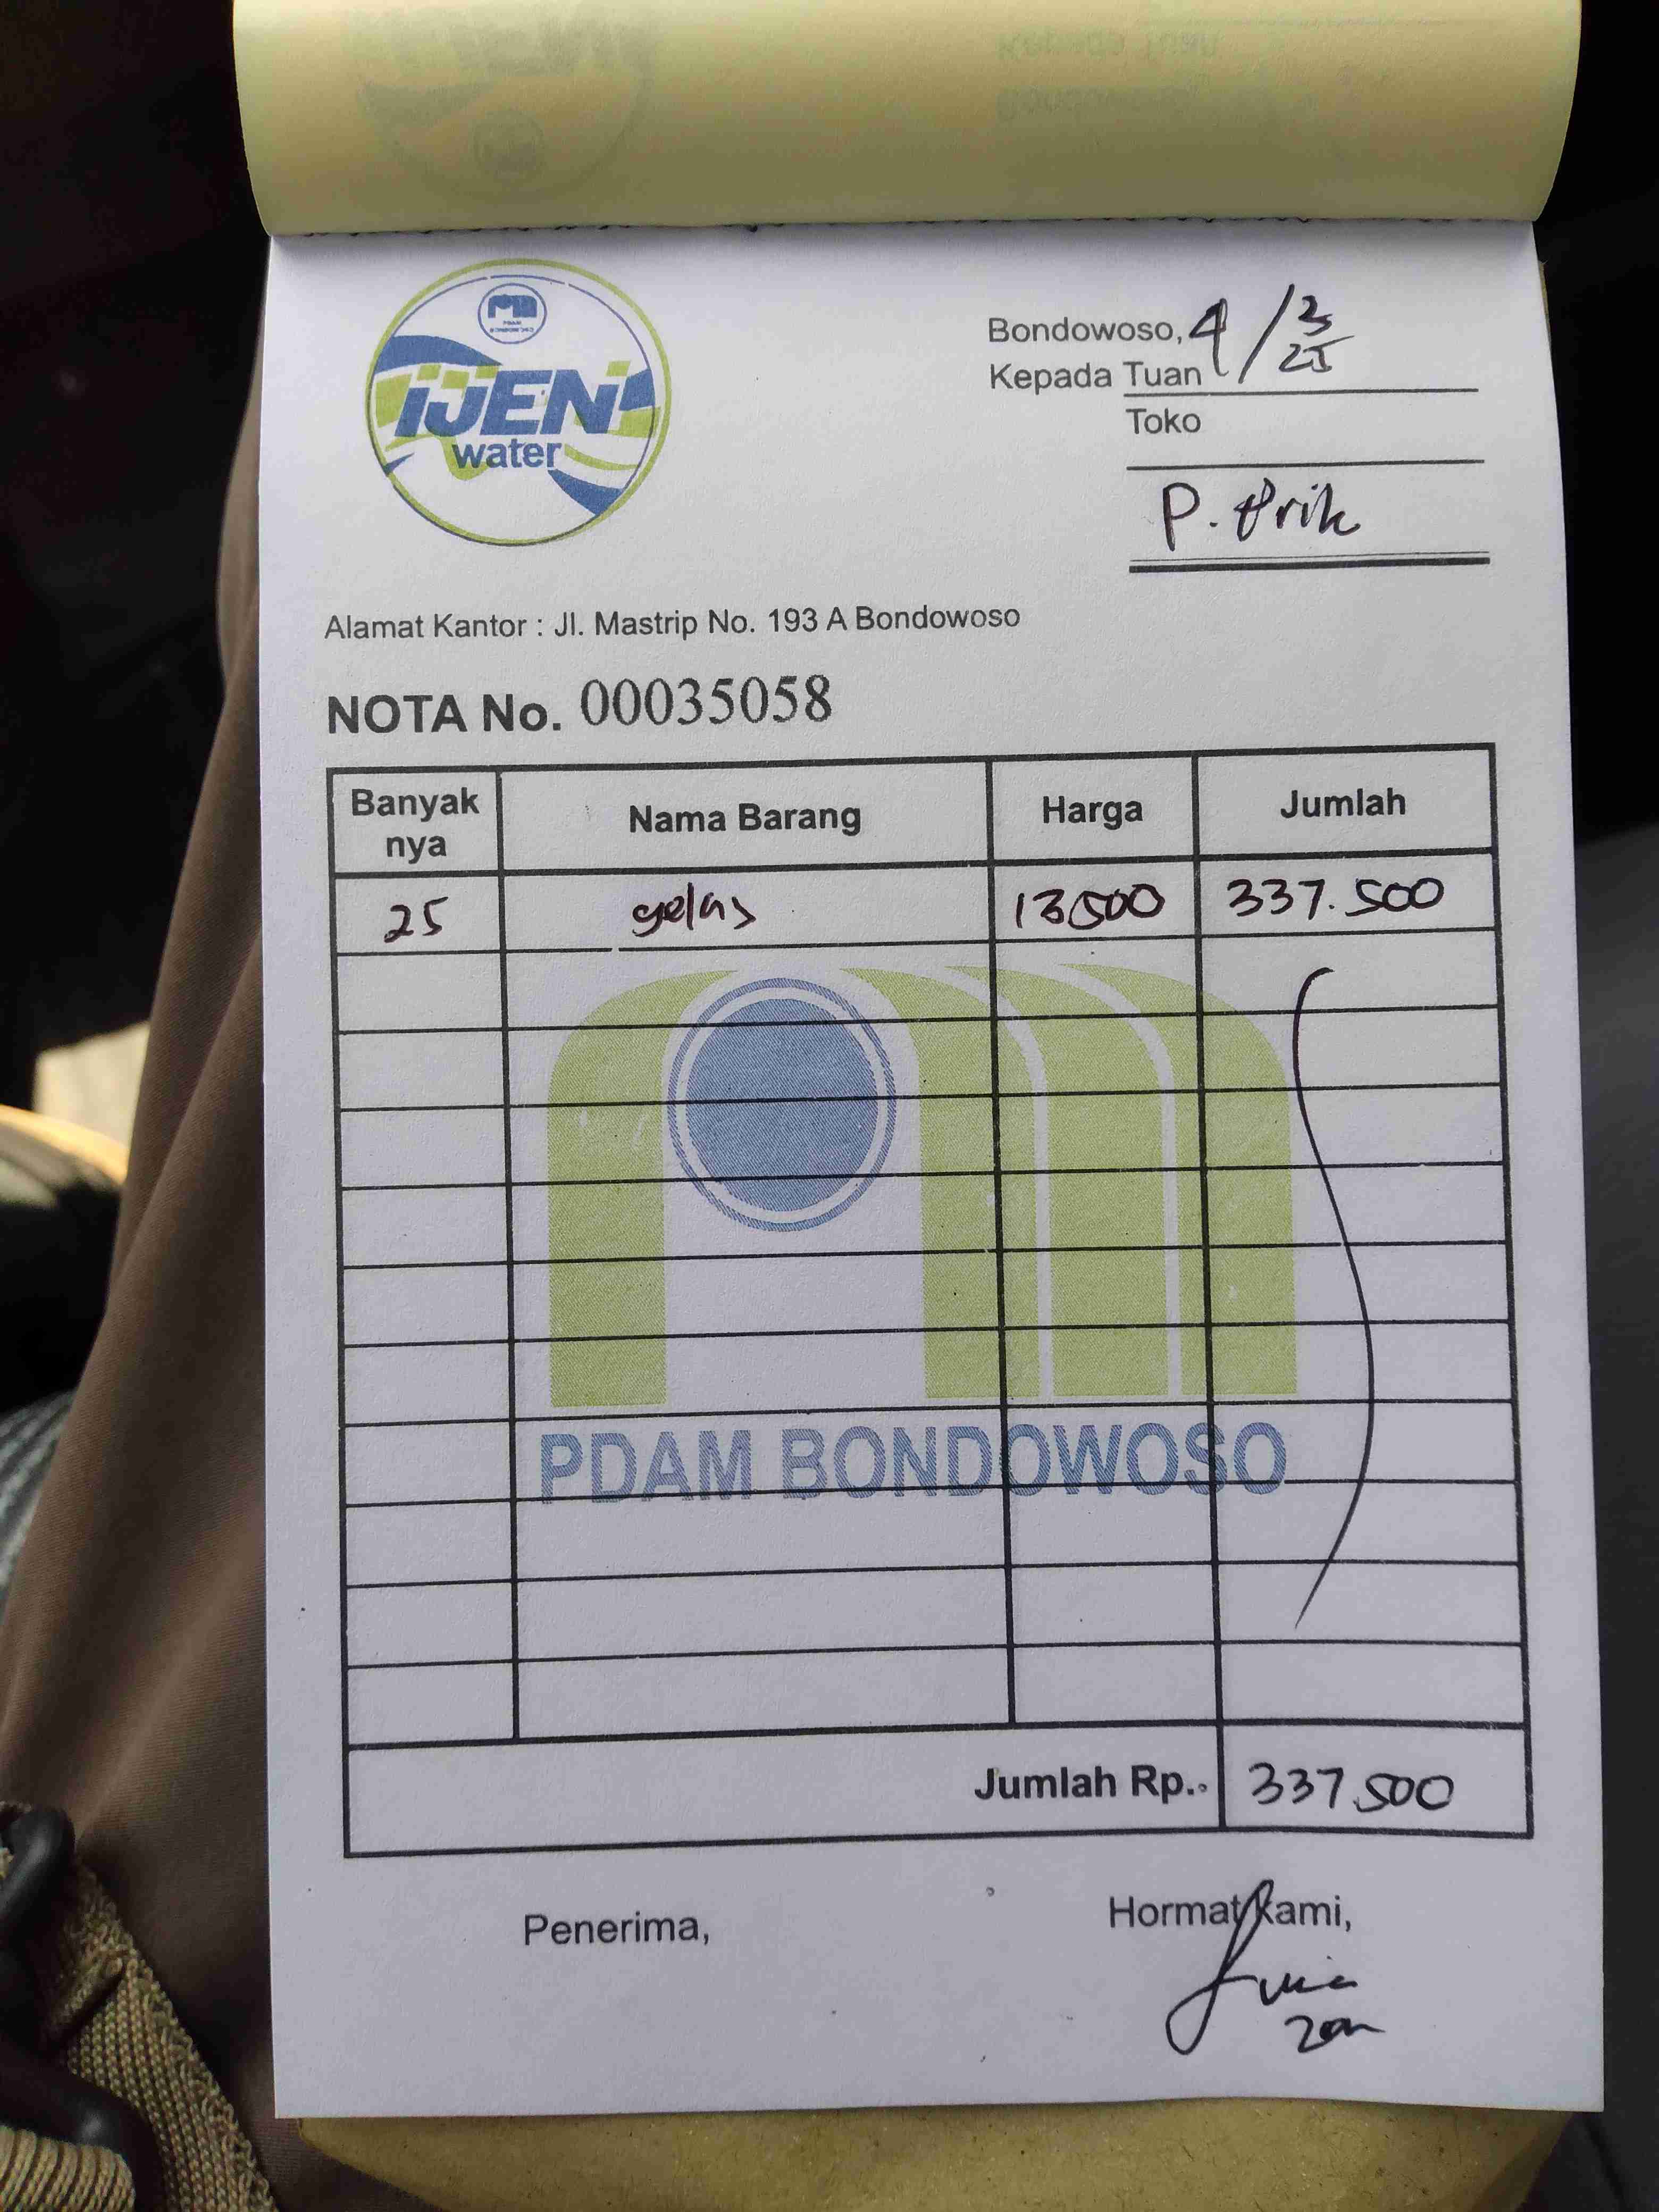 IJEN
water
Bondowoso, 4/3/25
Kepada Tuan
Toko
P. Erik
Alamat Kantor : Jl. Mastrip No. 193 A Bondowoso
NOTA No. 00035058
Banyak nya Nama Barang Harga Jumlah
25 gelas 13500 337.500
PDAM BONDOWOSO
Jumlah Rp.. 337.500
Penerima, Hormat kami,